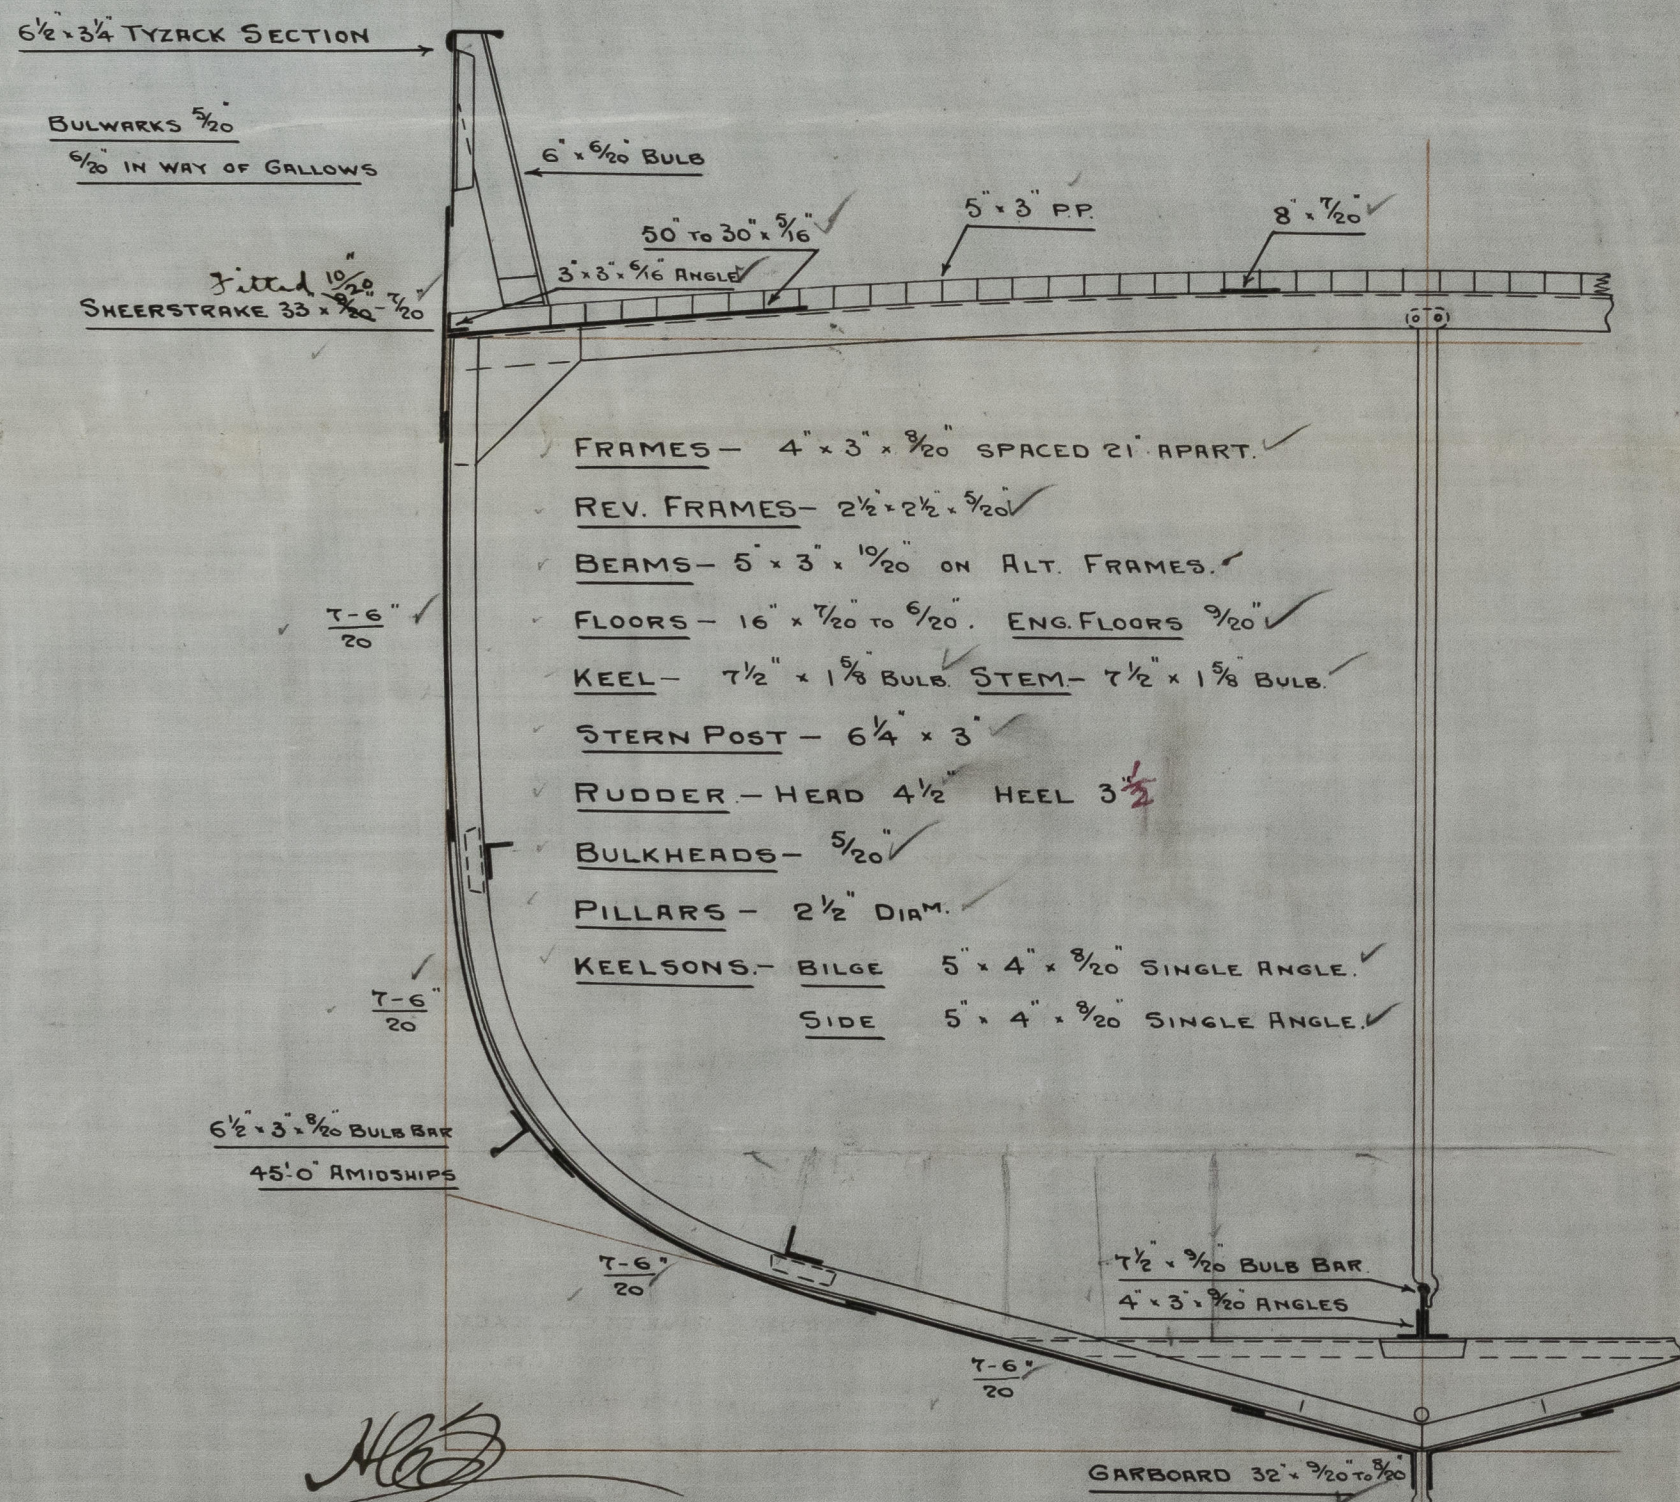 6½" × 3¼" TYZACK SECTION
BULWARKS 5/20"
6/20" IN WAY OF GALLOWS
6" × 6/20" BULB
50" TO 30" × 5/16"
3" × 3" × 6/16" ANGLE
5" × 3" P.P.
8" × 7/20"
Fitted 10/20"
SHEERSTRAKE 33" × 9/20" - 7/20"
FRAMES – 4" × 3" × 8/20" SPACED 21" APART.
REV. FRAMES – 2½" × 2½" × 5/20"
BEAMS – 5" × 3" × 10/20" ON ALT. FRAMES.
7-6"/20
FLOORS – 16" × 7/20" TO 6/20". ENG. FLOORS 9/20"
KEEL – 7½" × 1⅝" BULB. STEM – 7½" × 1⅝" BULB.
STERN POST – 6¼" × 3"
RUDDER. – HEAD 4½" HEEL 3"½
BULKHEADS – 5/20"
PILLARS – 2½" DIAM.
KEELSONS. – BILGE 5" × 4" × 8/20" SINGLE ANGLE.
7-6"/20
SIDE 5" × 4" × 8/20" SINGLE ANGLE.
6½" × 3" × 8/20" BULB BAR
45'-0" AMIDSHIPS
7-6"/20
7½" × 9/20" BULB BAR.
4" × 3" × 9/20" ANGLES
7-6"/20
GARBOARD 32" × 9/20" TO 8/20"